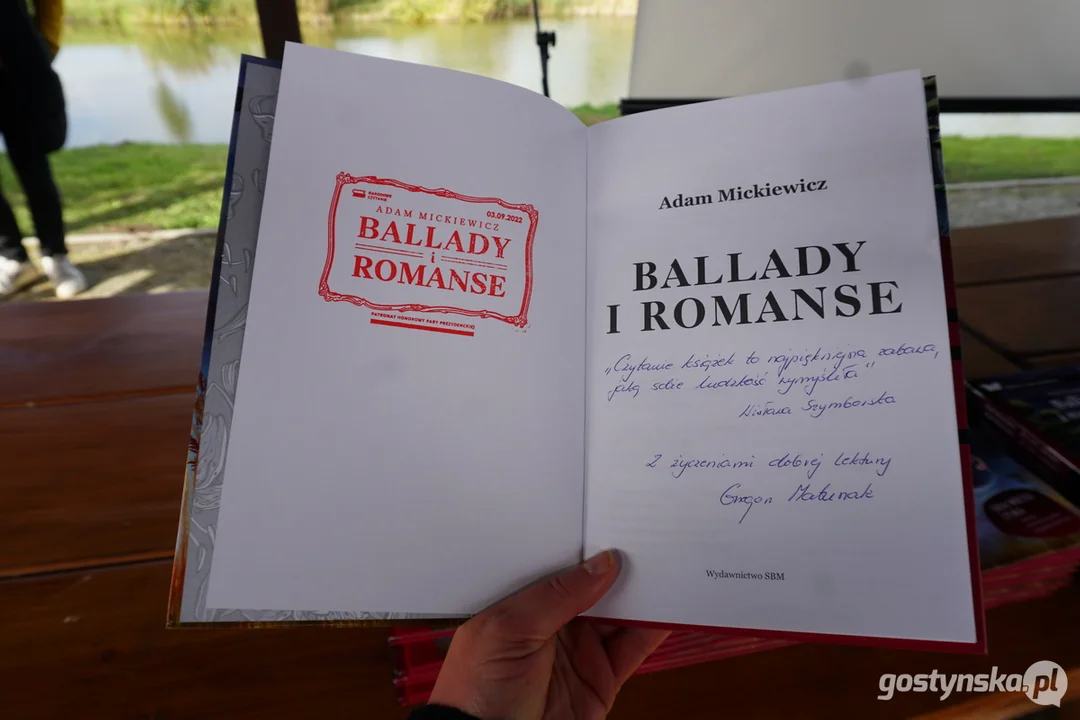 NARODOWE
CZYTANIE
03.09.2022
ADAM MICKIEWICZ
BALLADY
i
ROMANSE
PATRONAT HONOROWY PARY PREZYDENCKIEJ
Adam Mickiewicz
BALLADY
I ROMANSE
„Czytanie książek to najpiękniejsza zabawa,
jaką sobie ludzkość wymyśliła"
Wisława Szymborska
Z życzeniami dobrej lektury
Wydawnictwo SBM
gostynska.pl